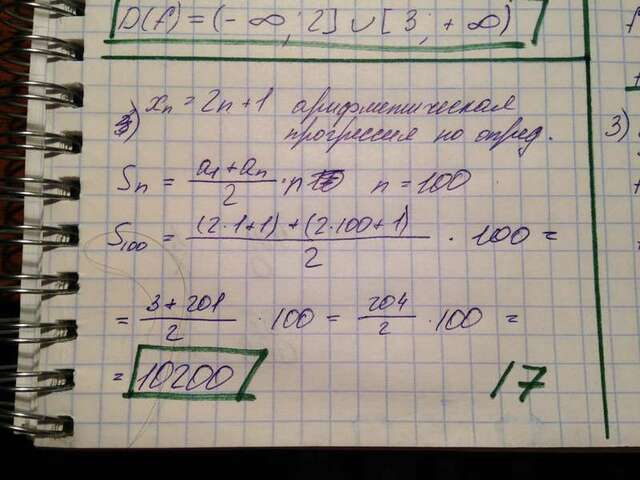 D(f) = (-∞; 2] ∪ [3; +∞)
3) xn = 2n+1 арифметическая
прогрессия по опред.
Sn = a1+an / 2 · n n = 100
S100 = (2·1+1)+(2·100+1) / 2 · 100 =
= 3+201 / 2 · 100 = 204 / 2 · 100 =
= 10200
17
3)